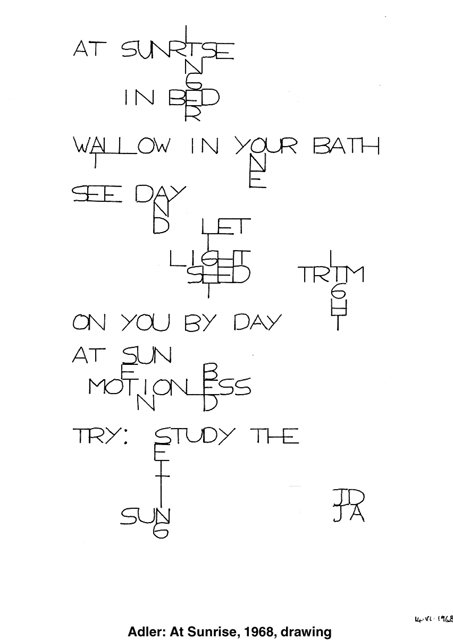 AT SUNRISE
LINGER
IN BED
WALLOW IN YOUR BATH
AT
ONE
SEE DAY
AND
LET
LIGHT
LIGHT
SHED
TRIM
LIGHT
ON YOU BY DAY
AT SUN
BED
MOTIONLESS
TRY: STUDY THE
SETTING
SUN
JD
JA
Adler: At Sunrise, 1968, drawing